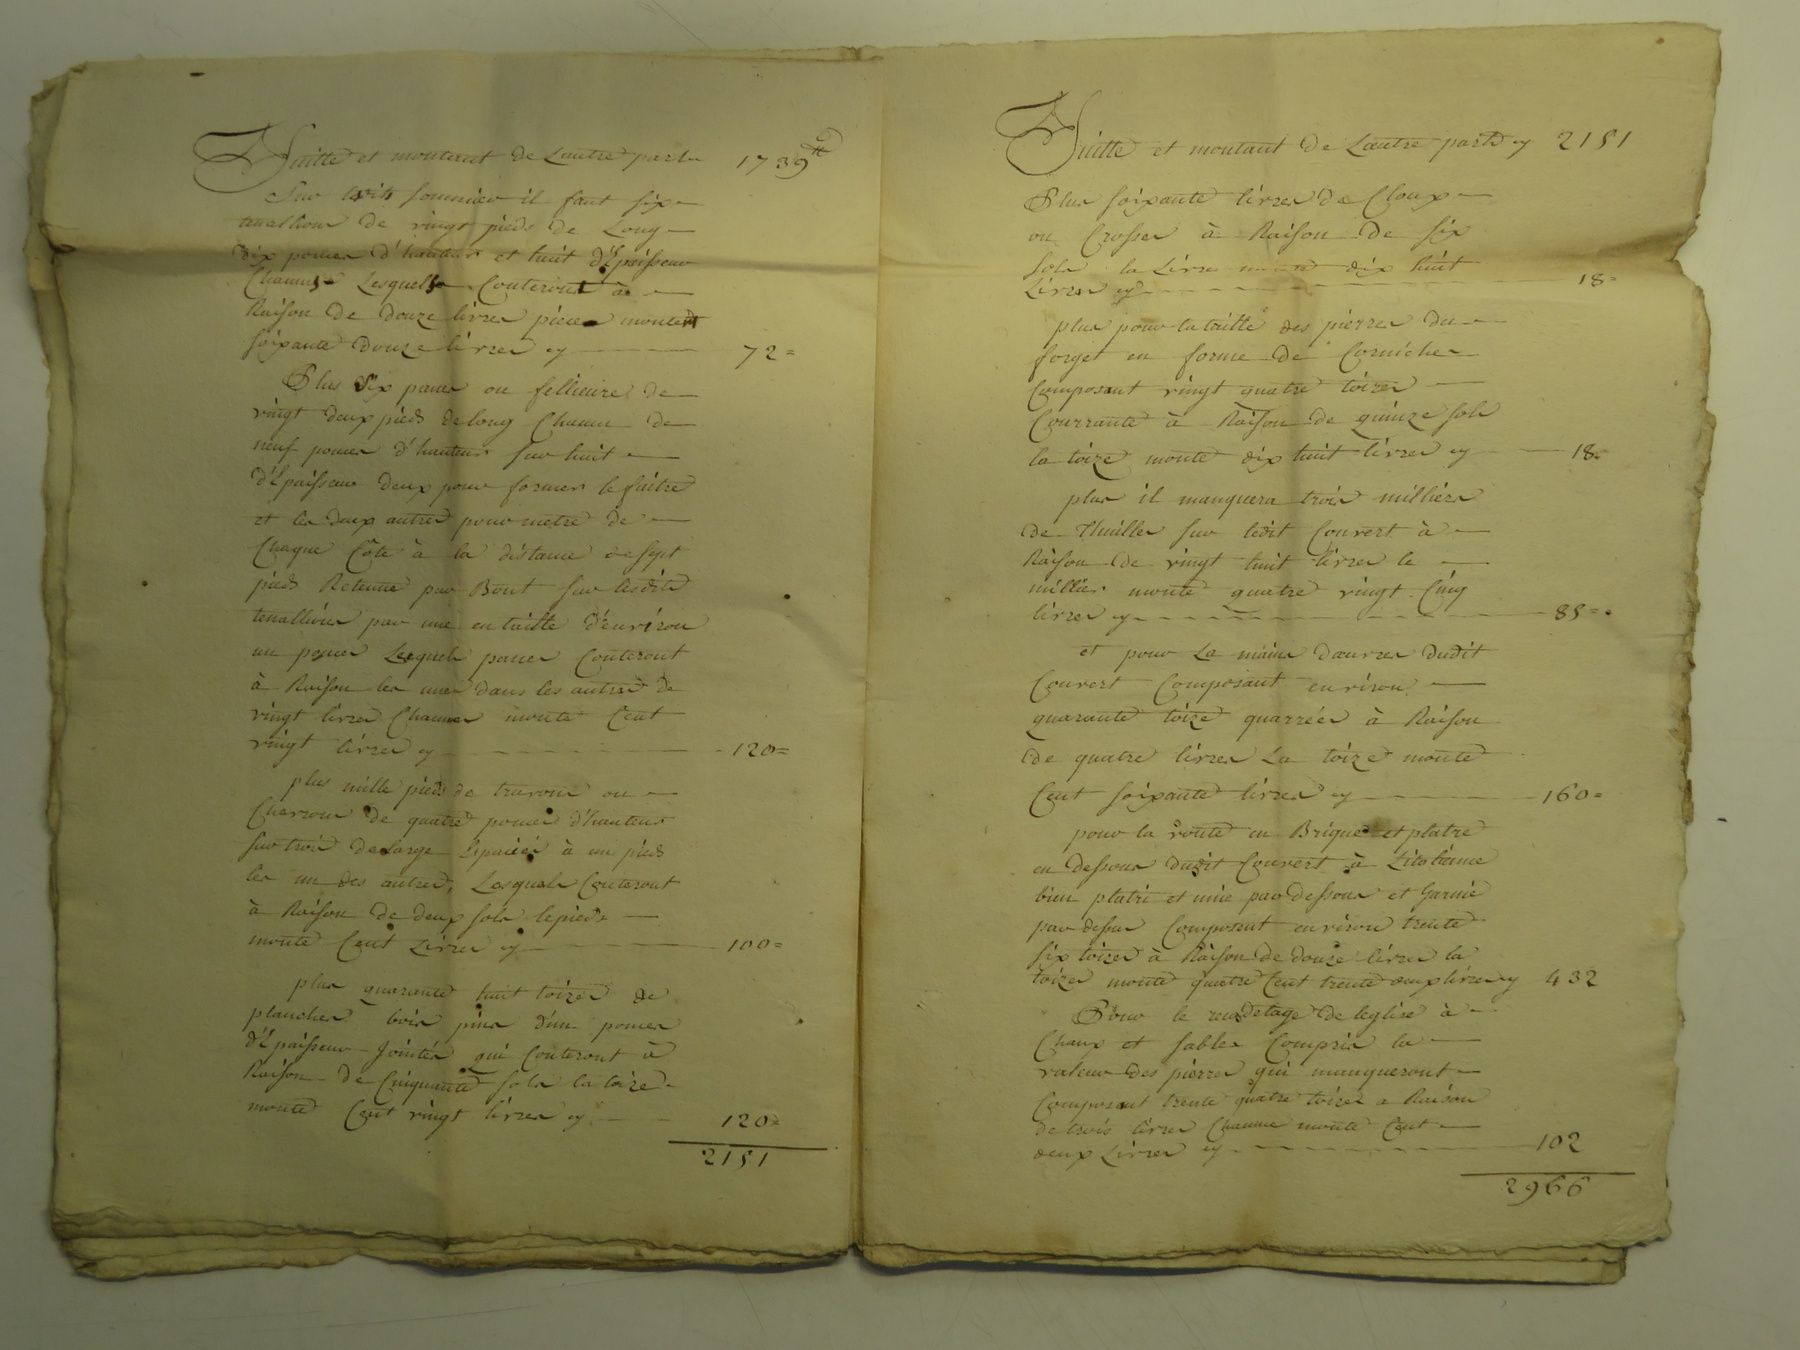 Suitte et montant de Lautre partie 1739#
Sur trois sommier il faut six
tenallions de vingt pieds de Long
dix pouces d'hauteur et huit d'Epaisseur
Chaunes Lesquels Conteront à
Raison de douze livres pieces montent
soixante douze livres cy 72=
Plus Six panes ou fellieire de
vingt deux pieds de long Chacun de
neuf pouces d'hauteur sur huit
d'Epaisseur deux pour former le faitre
et les deux autres pour metre de
Chaque Côte à la distance de sept
pieds Retenue par Bout sur lesdits
tenallions par une entaille d'environ
un pouces Lequels panes Conteront
à Raison les unes dans les autres de
vingt livres Chacunes monte Cent
vingt livres cy 120=
plus mille pieds de travons ou
Chevrons de quatre pouces d'hauteur
sur trois de Large Epacéés à un pieds
les un des autres, Lesquels Conteront
à Raison de deux sols le pieds
monte Cent Livres cy 100=
plus quarante huit toizes de
plancher bois pins d'un pouces
d'Epaisseur Jointés qui Conteront à
Raison de Cinquante sols la toize
monte Cent vingt livres cy 120=
2151
Suitte et montant de Lautre parts cy 2151
Plus soixante livres de Cloux
ou Crosses à Raison de six
sols la Livre monte dix huit
Livres cy 18=
plus pour la taille des pierres du
forget en forme de Corniches
Composant vingt quatre toizes
Courrante à Raison de quinze sols
la toize monte dix huit livres cy 18=
plus il manquera trois milliers
de Thuilles sur ledit Couvert à
Raison de vingt huit livres le
millier monte quatre vingt Cinq
livres cy 85=
et pour La mains d'œuvres dudit
Couvert Composant environ
quarante toize quarréés à Raison
de quatre livres La toize monte
Cent soixante livres cy 160=
pour la voute en Brique et platre
en dessous dudit Couvert à Litalienne
bien platri et unie par dessous et Garnie
par dessus Composent environ trente
six toizes à Raison de douze livres la
toizes monte quatre Cent trente deux livres cy 432
Pour le recadetage de leglise à
Chaux et sables Compris la
valeur des pierres qui manqueront
Composant trente quatre toizes a Raison
de trois livres Chacune monte Cent
deux Livres cy 102
2966